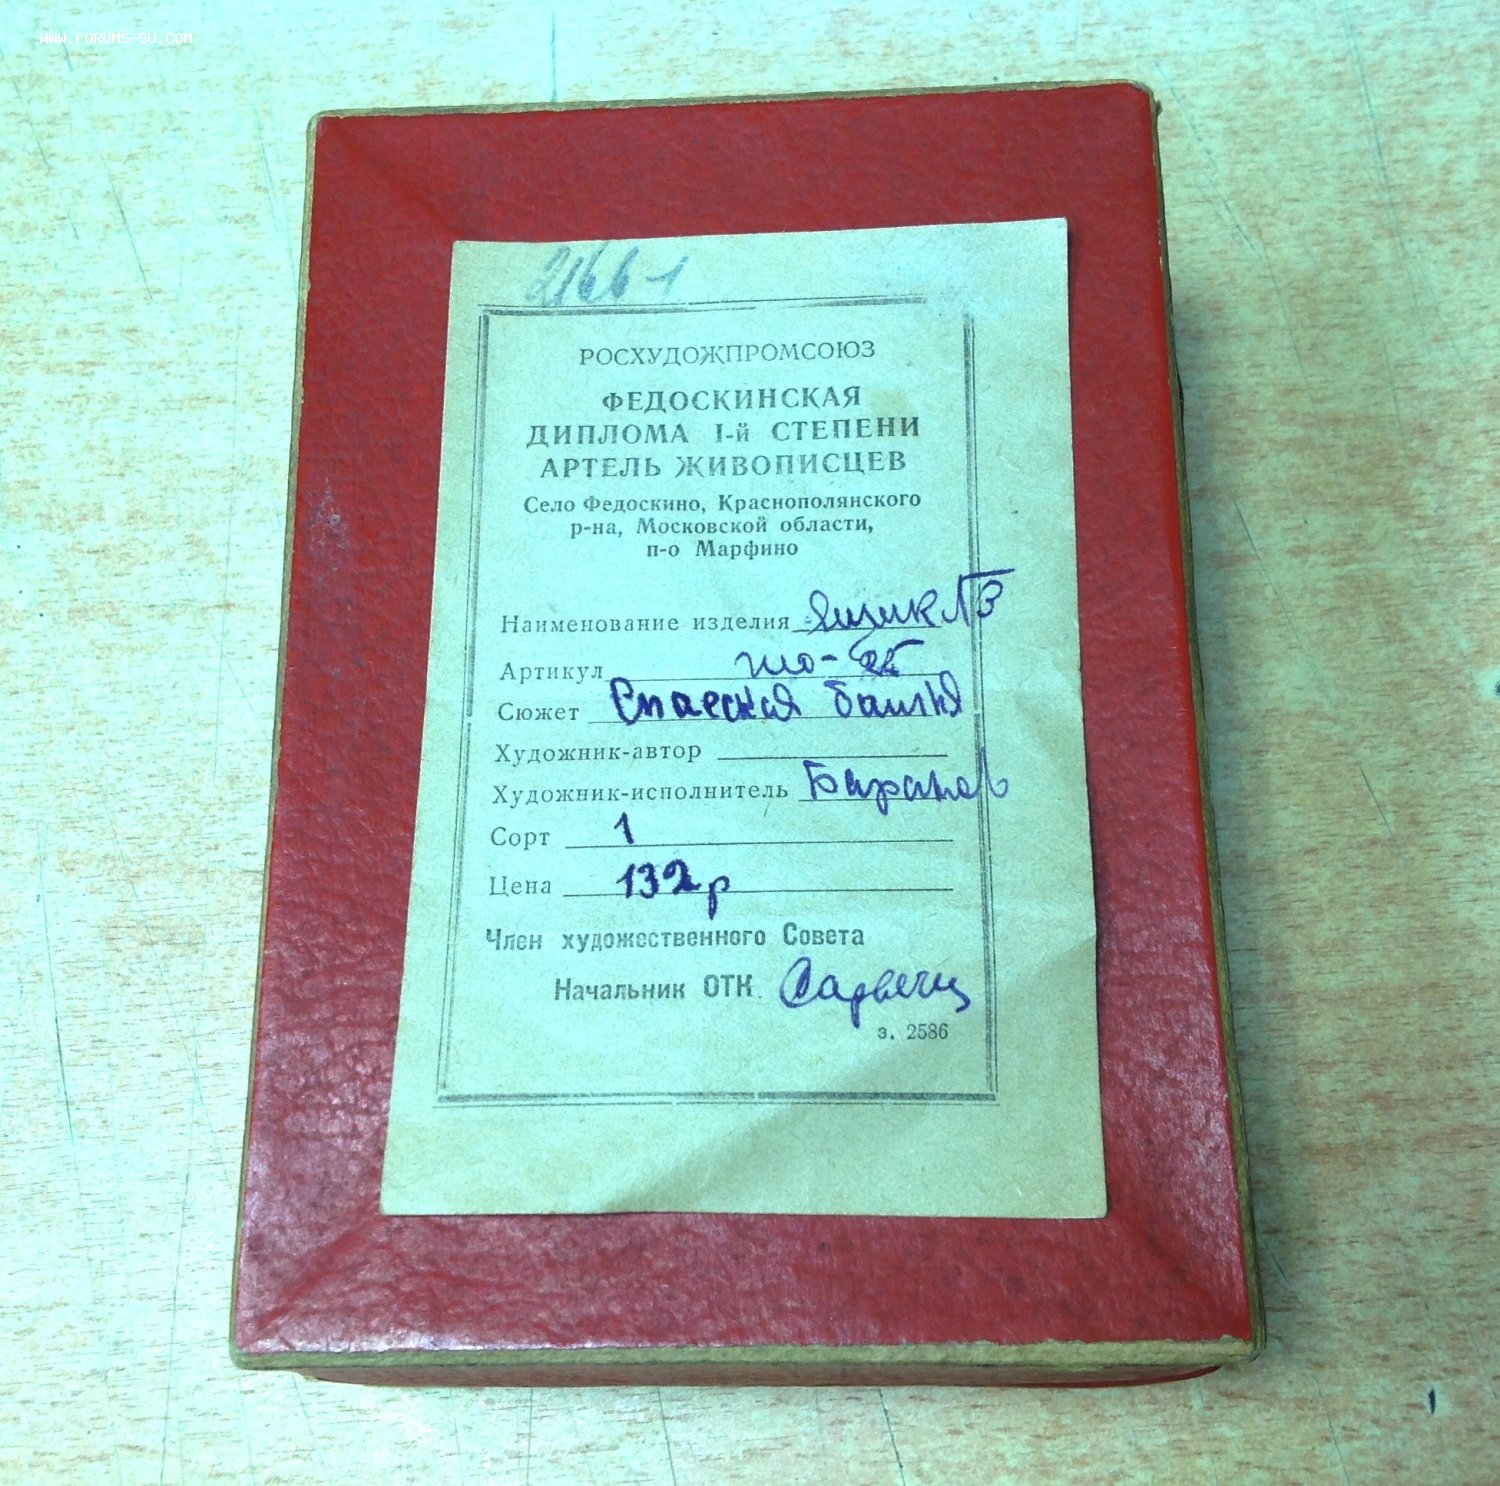 WWW.FORUMS-SU.COM
2166-1
РОСХУДОЖПРОМСОЮЗ
ФЕДОСКИНСКАЯ
ДИПЛОМА I-й СТЕПЕНИ
АРТЕЛЬ ЖИВОПИСЦЕВ
Село Федоскино, Краснополянского
р-на, Московской области,
п-о Марфино
Наименование изделия
Артикул
Сюжет Спасская башня
Художник-автор
Художник-исполнитель Баранов
Сорт 1
Цена 132 р
Член художественного Совета
Начальник ОТК
з. 2586